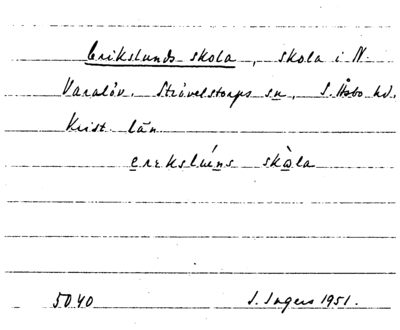 Erikslunds skola, skola i N.
Varalöv. Strövelstorps sn, S. Åsbo hd.
Krist. län
erekslúns skòla
5040 I. Ingers 1951.